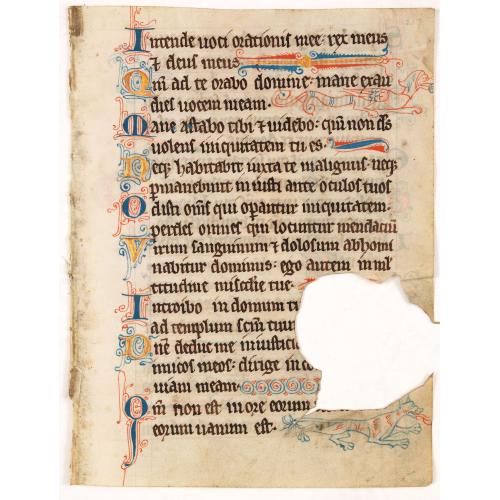 Intende voci orationis mee: rex meus
⁊ deus meus
Qm̄ ad te orabo domine: mane exau
dies vocem meam.
Mane astabo tibi ⁊ videbo: qm̄ non ds̄
volens iniquitatem tu es.
Neqꝫ habitabit iuxta te malignus: neqꝫ
ꝑmanebunt iniusti ante oculos tuos
Odisti om̄s qui oꝑantur iniquitatem:
perdes omnes qui locuntur mendaciū
Virum sanguinum ⁊ dolosum abhomi
nabitur dominus: ego autem in ml̄
titudine miscd̄ie tue.
Introibo in domum
ad templum scm̄ tuum
Dn̄e deduc me in iusticia
imicos meos: dirige in
viam meam.
Qm̄ non est in ore eorum
eorum vanum est.